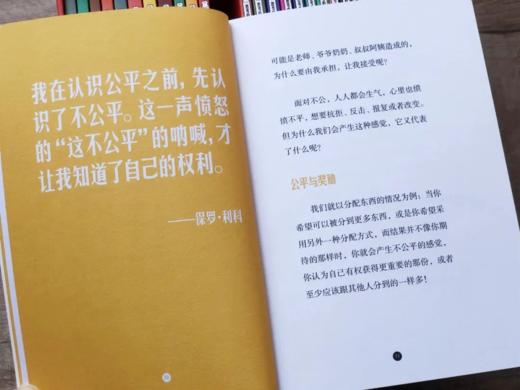 我在认识公平之前，先认
识了不公平。这一声愤怒
的“这不公平”的呐喊，才
让我知道了自己的权利。
——保罗·利科
可能是老师、爷爷奶奶、叔叔阿姨造成的，
为什么要由我承担，让我接受呢？
面对不公，人人都会生气，心里也愤
愤不平，想要抗拒、反击、报复或者改变。
但为什么我们会产生这种感觉，它又代表
了什么呢？
公平与奖励
我们就以分配东西的情况为例：当你
希望可以被分到更多东西，或是你希望采
用另外一种分配方式，而结果并不像你期
待的那样时，你就会产生不公平的感觉，
你认为自己有权获得更重要的那份，或者
至少应该跟其他人分到的一样多！